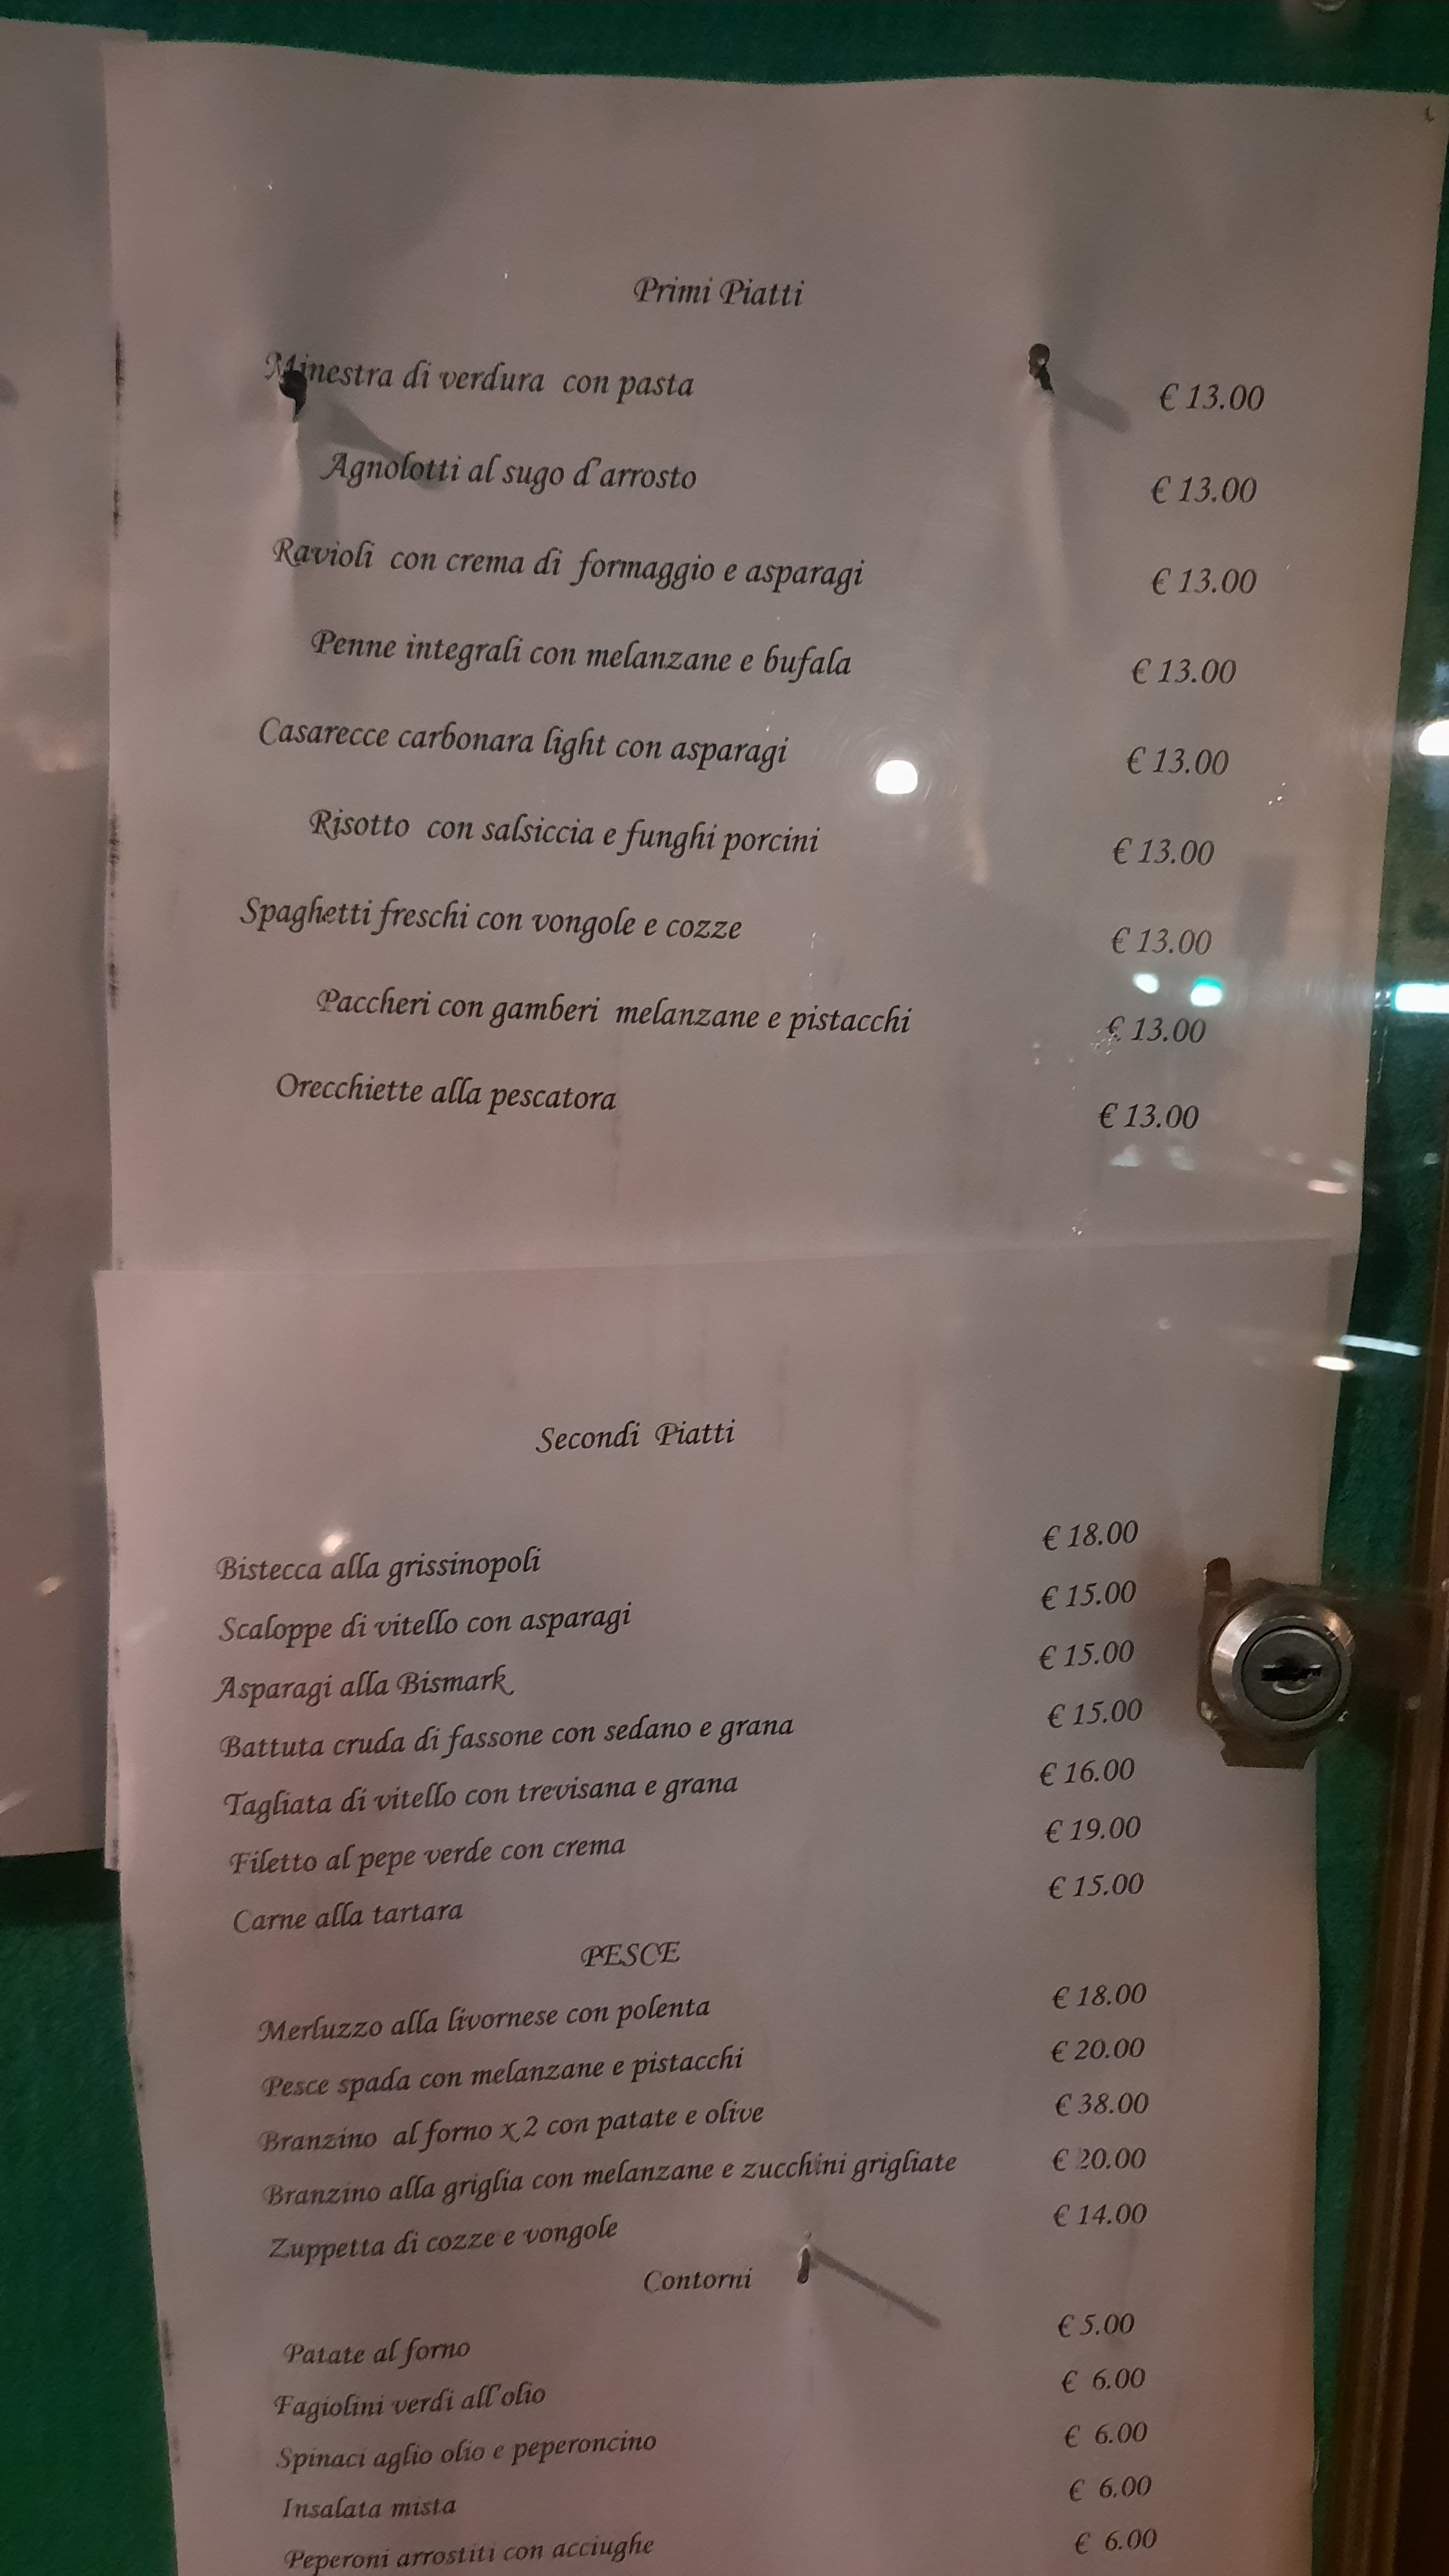 Primi Piatti
Minestra di verdura con pasta € 13.00
Agnolotti al sugo d'arrosto € 13.00
Ravioli con crema di formaggio e asparagi € 13.00
Penne integrali con melanzane e bufala € 13.00
Casarecce carbonara light con asparagi € 13.00
Risotto con salsiccia e funghi porcini € 13.00
Spaghetti freschi con vongole e cozze € 13.00
Paccheri con gamberi melanzane e pistacchi € 13.00
Orecchiette alla pescatora € 13.00
Secondi Piatti
Bistecca alla grissinopoli € 18.00
Scaloppe di vitello con asparagi € 15.00
Asparagi alla Bismark € 15.00
Battuta cruda di fassone con sedano e grana € 15.00
Tagliata di vitello con trevisana e grana € 16.00
Filetto al pepe verde con crema € 19.00
Carne alla tartara € 15.00
PESCE
Merluzzo alla livornese con polenta € 18.00
Pesce spada con melanzane e pistacchi € 20.00
Branzino al forno x 2 con patate e olive € 38.00
Branzino alla griglia con melanzane e zucchini grigliate € 20.00
Zuppetta di cozze e vongole € 14.00
Contorni
Patate al forno € 5.00
Fagiolini verdi all'olio € 6.00
Spinaci aglio olio e peperoncino € 6.00
Insalata mista € 6.00
Peperoni arrostiti con acciughe € 6.00